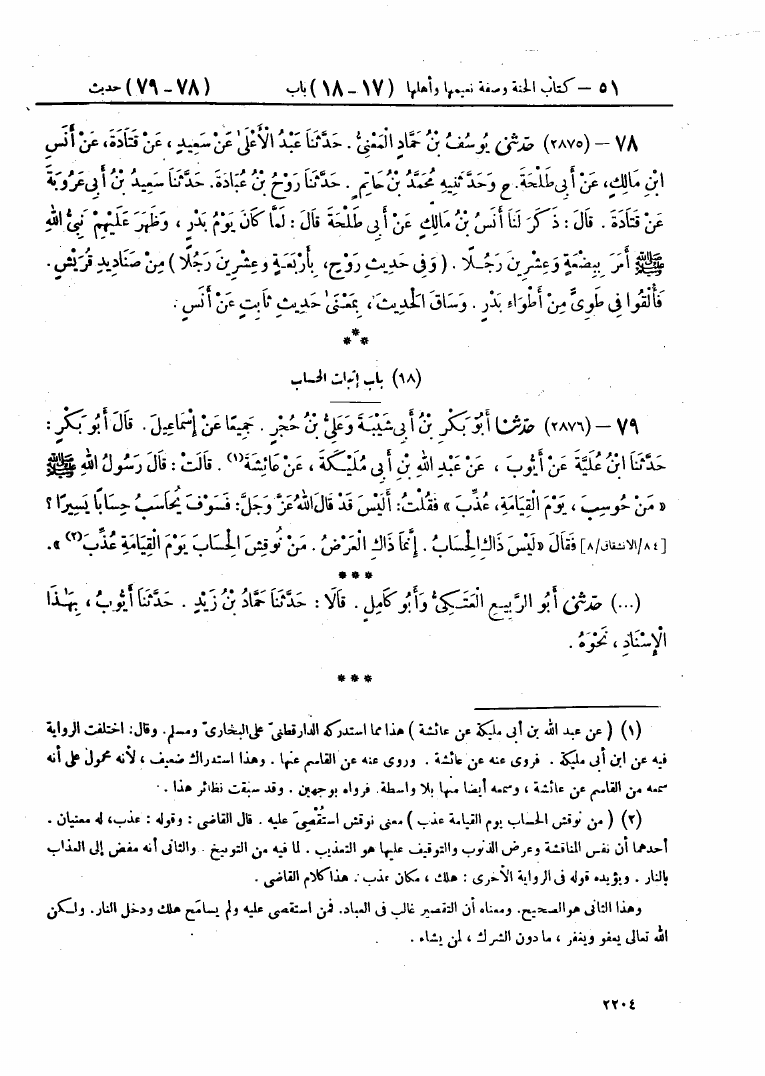 ٥١ – كتاب الجنة وصفة نعيمها وأهلها (١٧ – ١٨) باب (٧٨ – ٧٩) حديث
٧٨ – (٢٨٧٥) حَدَّثَنِي يُوسُفُ بْنُ حَمَّادٍ الْمَعْنِيُّ . حَدَّثَنَا عَبْدُ الْأَعْلَىٰ عَنْ سَعِيدٍ ، عَنْ قَتَادَةَ، عَنْ أَنَسِ
ابْنِ مَالِكٍ، عَنْ أَبِي طَلْحَةَ. ح وَحَدَّثَنِيهِ مُحَمَّدُ بْنُ حَاتِمٍ . حَدَّثَنَا رَوْحُ بْنُ عُبَادَةَ. حَدَّثَنَا سَعِيدُ بْنُ أَبِي عَرُوبَةَ
عَنْ قَتَادَةَ . قَالَ : ذَكَرَ لَنَا أَنَسُ بْنُ مَالِكٍ عَنْ أَبِي طَلْحَةَ قَالَ : لَمَّا كَانَ يَوْمُ بَدْرٍ ، وَظَهَرَ عَلَيْهِمْ نَبِيُّ اللهِ
ﷺ أَمَرَ بِبِضْعَةٍ وَعِشْرِينَ رَجُلًا . ( وَفِي حَدِيثِ رَوْحٍ، بِأَرْبَعَةٍ وَعِشْرِينَ رَجُلًا ) مِنْ صَنَادِيدِ قُرَيْشٍ .
فَأُلْقُوا فِي طَوِيٍّ مِنْ أَطْوَاءِ بَدْرٍ . وَسَاقَ الْحَدِيثَ، بِمَعْنَىٰ حَدِيثِ ثَابِتٍ عَنْ أَنَسٍ .
***
(١٨) باب إثبات الحساب
٧٩ – (٢٨٧٦) حَدَّثَنَا أَبُو بَكْرِ بْنُ أَبِي شَيْبَةَ وَعَلِيُّ بْنُ حُجْرٍ . جَمِيعًا عَنْ إِسْمَاعِيلَ . قَالَ أَبُو بَكْرٍ :
حَدَّثَنَا ابْنُ عُلَيَّةَ عَنْ أَيُّوبَ ، عَنْ عَبْدِ اللهِ بْنِ أَبِي مُلَيْكَةَ ، عَنْ عَائِشَةَ(١) . قَالَتْ : قَالَ رَسُولُ اللهِ ﷺ
« مَنْ حُوسِبَ ، يَوْمَ الْقِيَامَةِ، عُذِّبَ » فَقُلْتُ: أَلَيْسَ قَدْ قَالَ اللهُ عَزَّ وَجَلَّ: فَسَوْفَ يُحَاسَبُ حِسَابًا يَسِيرًا ؟
[٨٤/الانشقاق/٨] فَقَالَ « لَيْسَ ذَاكِ الْحِسَابُ . إِنَّمَا ذَاكِ الْعَرْضُ . مَنْ نُوقِشَ الْحِسَابَ يَوْمَ الْقِيَامَةِ عُذِّبَ(٢) ».
***
(...) حَدَّثَنِي أَبُو الرَّبِيعِ الْعَتَكِيُّ وَأَبُو كَامِلٍ . قَالَا : حَدَّثَنَا حَمَّادُ بْنُ زَيْدٍ . حَدَّثَنَا أَيُّوبُ ، بِهَٰذَا
الْإِسْنَادِ ، نَحْوَهُ .
***
(١) ( عن عبد الله بن أبي مليكة عن عائشة ) هذا مما استدركه الدارقطنيّ على البخاريّ ومسلم. وقال: اختلفت الرواية
فيه عن ابن أبي مليكة . فروى عنه عن عائشة . وروى عنه عن القاسم عنها . وهذا استدراك ضعيف ، لأنه محمول على أنه
سمعه من القاسم عن عائشة ، وسمعه أيضا منها بلا واسطة. فرواه بوجهين . وقد سبقت نظائر هذا .
(٢) ( من نوقش الحساب يوم القيامة عذب ) معنى نوقش استُقْصِيَ عليه . قال القاضى : وقوله : عذب، له معنيان .
أحدهما أن نفس المناقشة وعرض الذنوب والتوقيف عليها هو التعذيب . لما فيه من التوبيخ . والثانى أنه مفض إلى العذاب
بالنار . ويؤيده قوله فى الرواية الأخرى : هلك ، مكان عذب . هذا كلام القاضى .
وهذا الثانى هو الصحيح. ومعناه أن التقصير غالب فى العباد. فمن استقصى عليه ولم يسامَح هلك ودخل النار. ولكن
الله تعالى يعفو ويغفر ، ما دون الشرك ، لمن يشاء .
٢٢٠٤